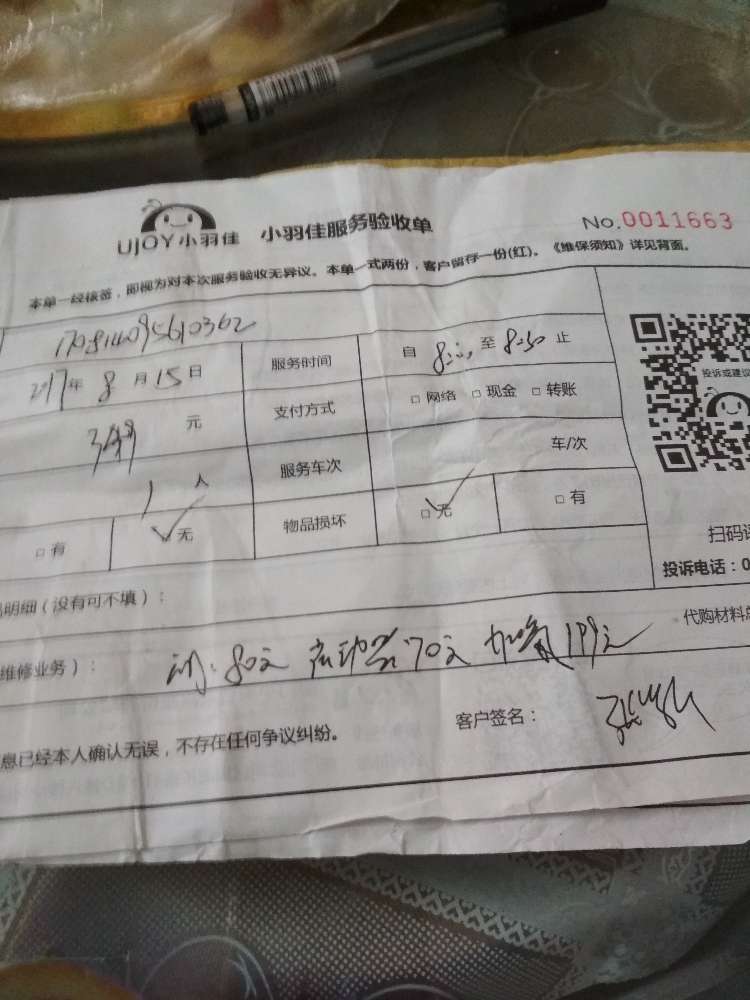 UJOY小羽佳 小羽佳服务验收单 No.0011663
本单一经核签，即视为对本次服务验收无异议。本单一式两份，客户留存一份(红)。《维保须知》详见背面。
服务时间 自 8:00 至 8:50 止
2017年 8月 15日
支付方式 □ 网络 □ 现金 □ 转账
投诉或建议
349 元
1 人 服务车次 车/次
□ 有 无 物品损坏 □ 无 □ 有
扫码
投诉电话：0
明细（没有可不填）：
代购材料
维修业务）： 80元 启动器70元 加氟199元
客户签名：
息已经本人确认无误，不存在任何争议纠纷。